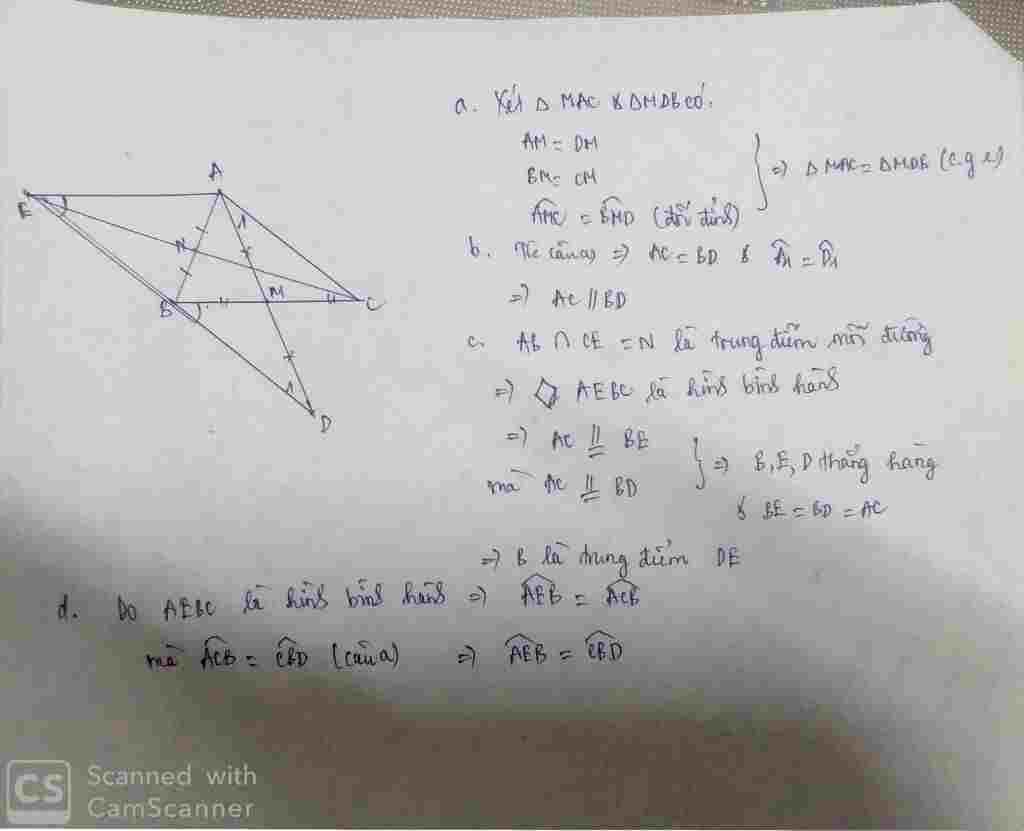 a. Xét Δ MAC & ΔMDB có.
AM = DM
BM = CM
AMC = BMD (đối đỉnh)
=> Δ MAC = ΔMDB (c.g.c)
b. Từ câu a => AC = BD & A1 = D1
=> AC // BD
c. AB ∩ CE = N là trung điểm mỗi đường
=> AEBC là hình bình hành
=> AC // BE
mà AC // BD
=> B, E, D thẳng hàng
& BE = BD = AC
=> B là trung điểm DE
d. Do AEBC là hình bình hành => AEB = ACB
mà ACB = CBD (câu a) => AEB = CBD
A
E
1
N
B
M
C
1
D
CS
Scanned with
CamScanner